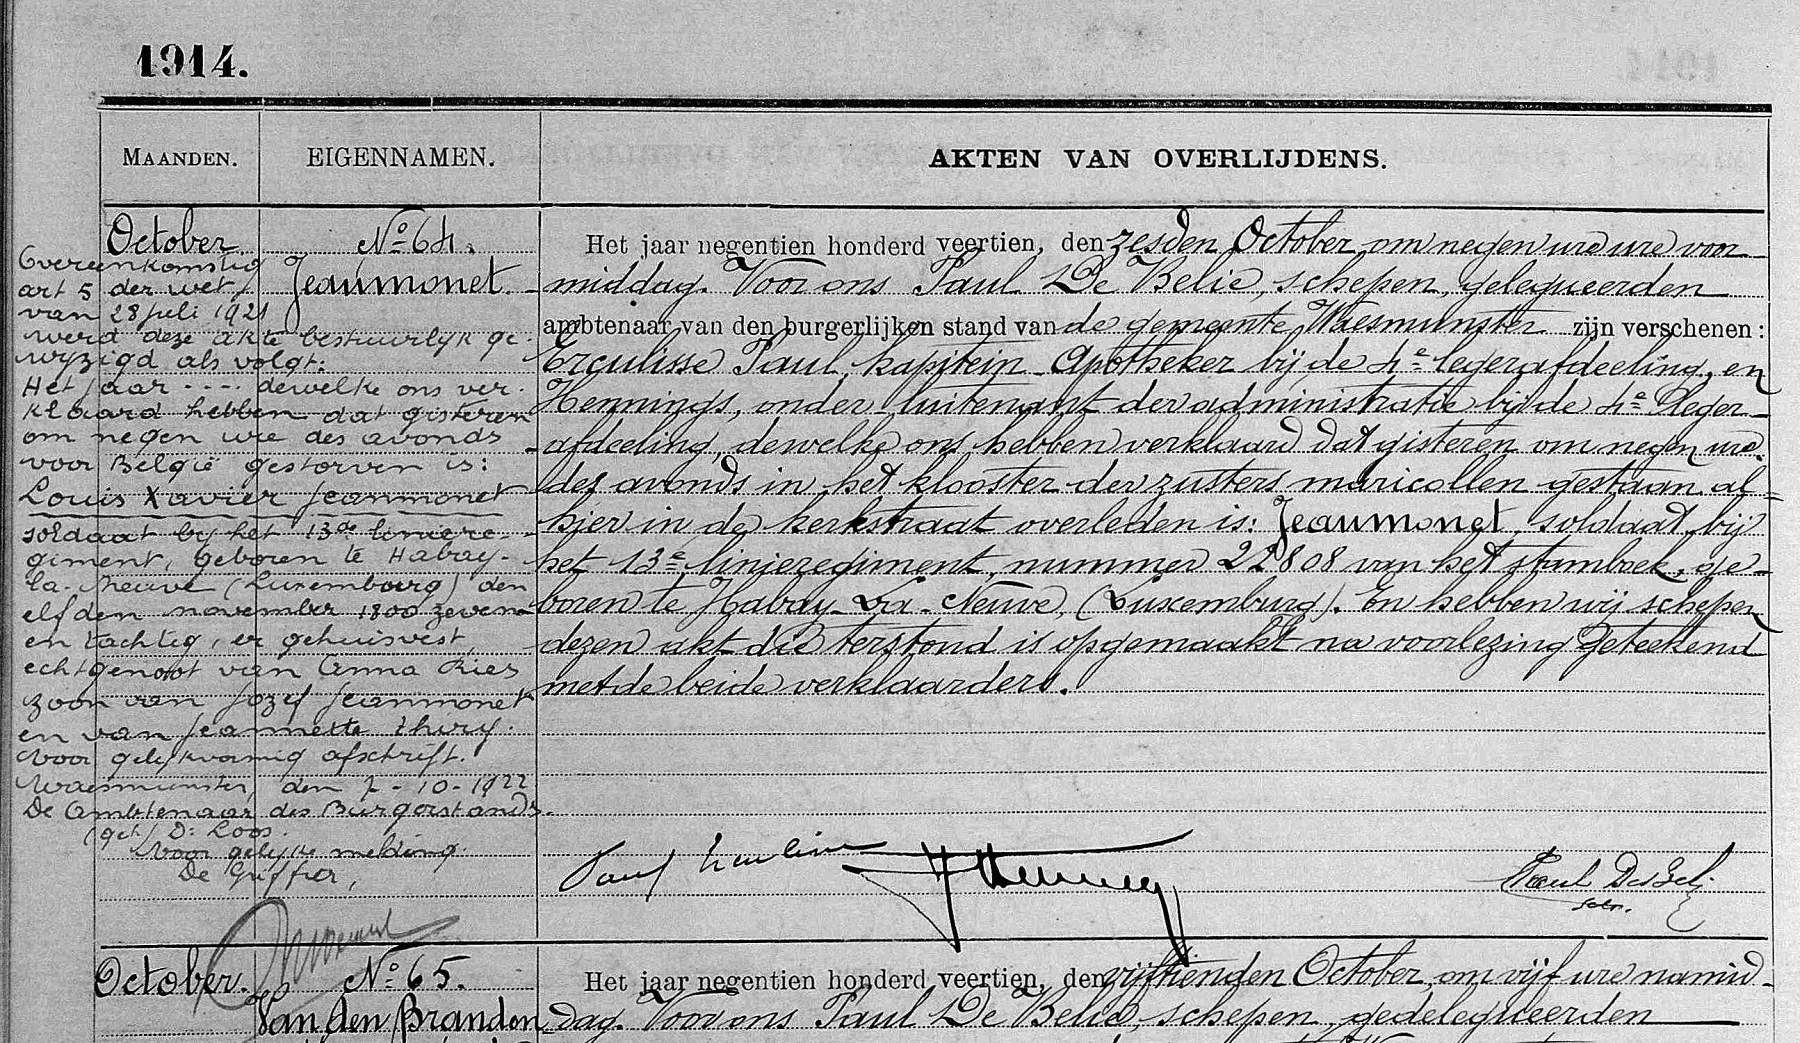 1914.
MAANDEN.
EIGENNAMEN.
AKTEN VAN OVERLIJDENS.
October
No 64.
Jeaumonet
Overeenkomstig
art 5 der wet
van 28 juli 1921
werd deze akte bestuurlijk ge-
wyzigd als volgt:
Het jaar .... dewelke ons ver-
klaard hebben dat gisteren
om negen ure des avonds
voor België gestorven is:
Louis Xavier Jeanmonet
soldaat by het 13de liniere-
giment, geboren te Habay-
la-Neuve (Luxembourg) den
elfden november 1800 zeven-
en tachtig, er gehuisvest,
echtgenoot van Anna Ries
zoon van Jozef Jeanmonet
en van Jeannette Thiry.
Voor gelykvormig afschrift.
Waesmunster, den 7-10-1922
De Ambtenaar des Burgerstands.
(get) D. Loos.
Voor gelyke melding.
De Griffier,
Het jaar negentien honderd veertien, den zesden October om negen ure ure voor-
middag. Voor ons Paul De Belie, schepen, gelequeerden
ambtenaar van den burgerlijken stand van de gemeente Waesmunster zijn verschenen:
Erculisse Paul, kapitein-Apotheker bij de 4e legerafdeeling, en
Hennings, onder-luitenant der administratie bij de 4e leger-
afdeeling, dewelke ons hebben verklaard dat gisteren om negen ure
des avonds in het klooster der zusters maricollen gestaan al-
hier in de kerkstraat overleden is: Jeaumonet, soldaat bij
het 13e linieregiment, nummer 22808 van het stamboek, ge-
boren te Habay-La-Neuve, (Luxemburg). En hebben wij schepen
dezen akt die terstond is opgemaakt na voorlezing geteekend
met de beide verklaarders.
October.
No 65.
Van den Branden
Het jaar negentien honderd veertien, den vijftienden October om vijf ure namid-
dag. Voor ons Paul De Belie, schepen, gedelequeerden